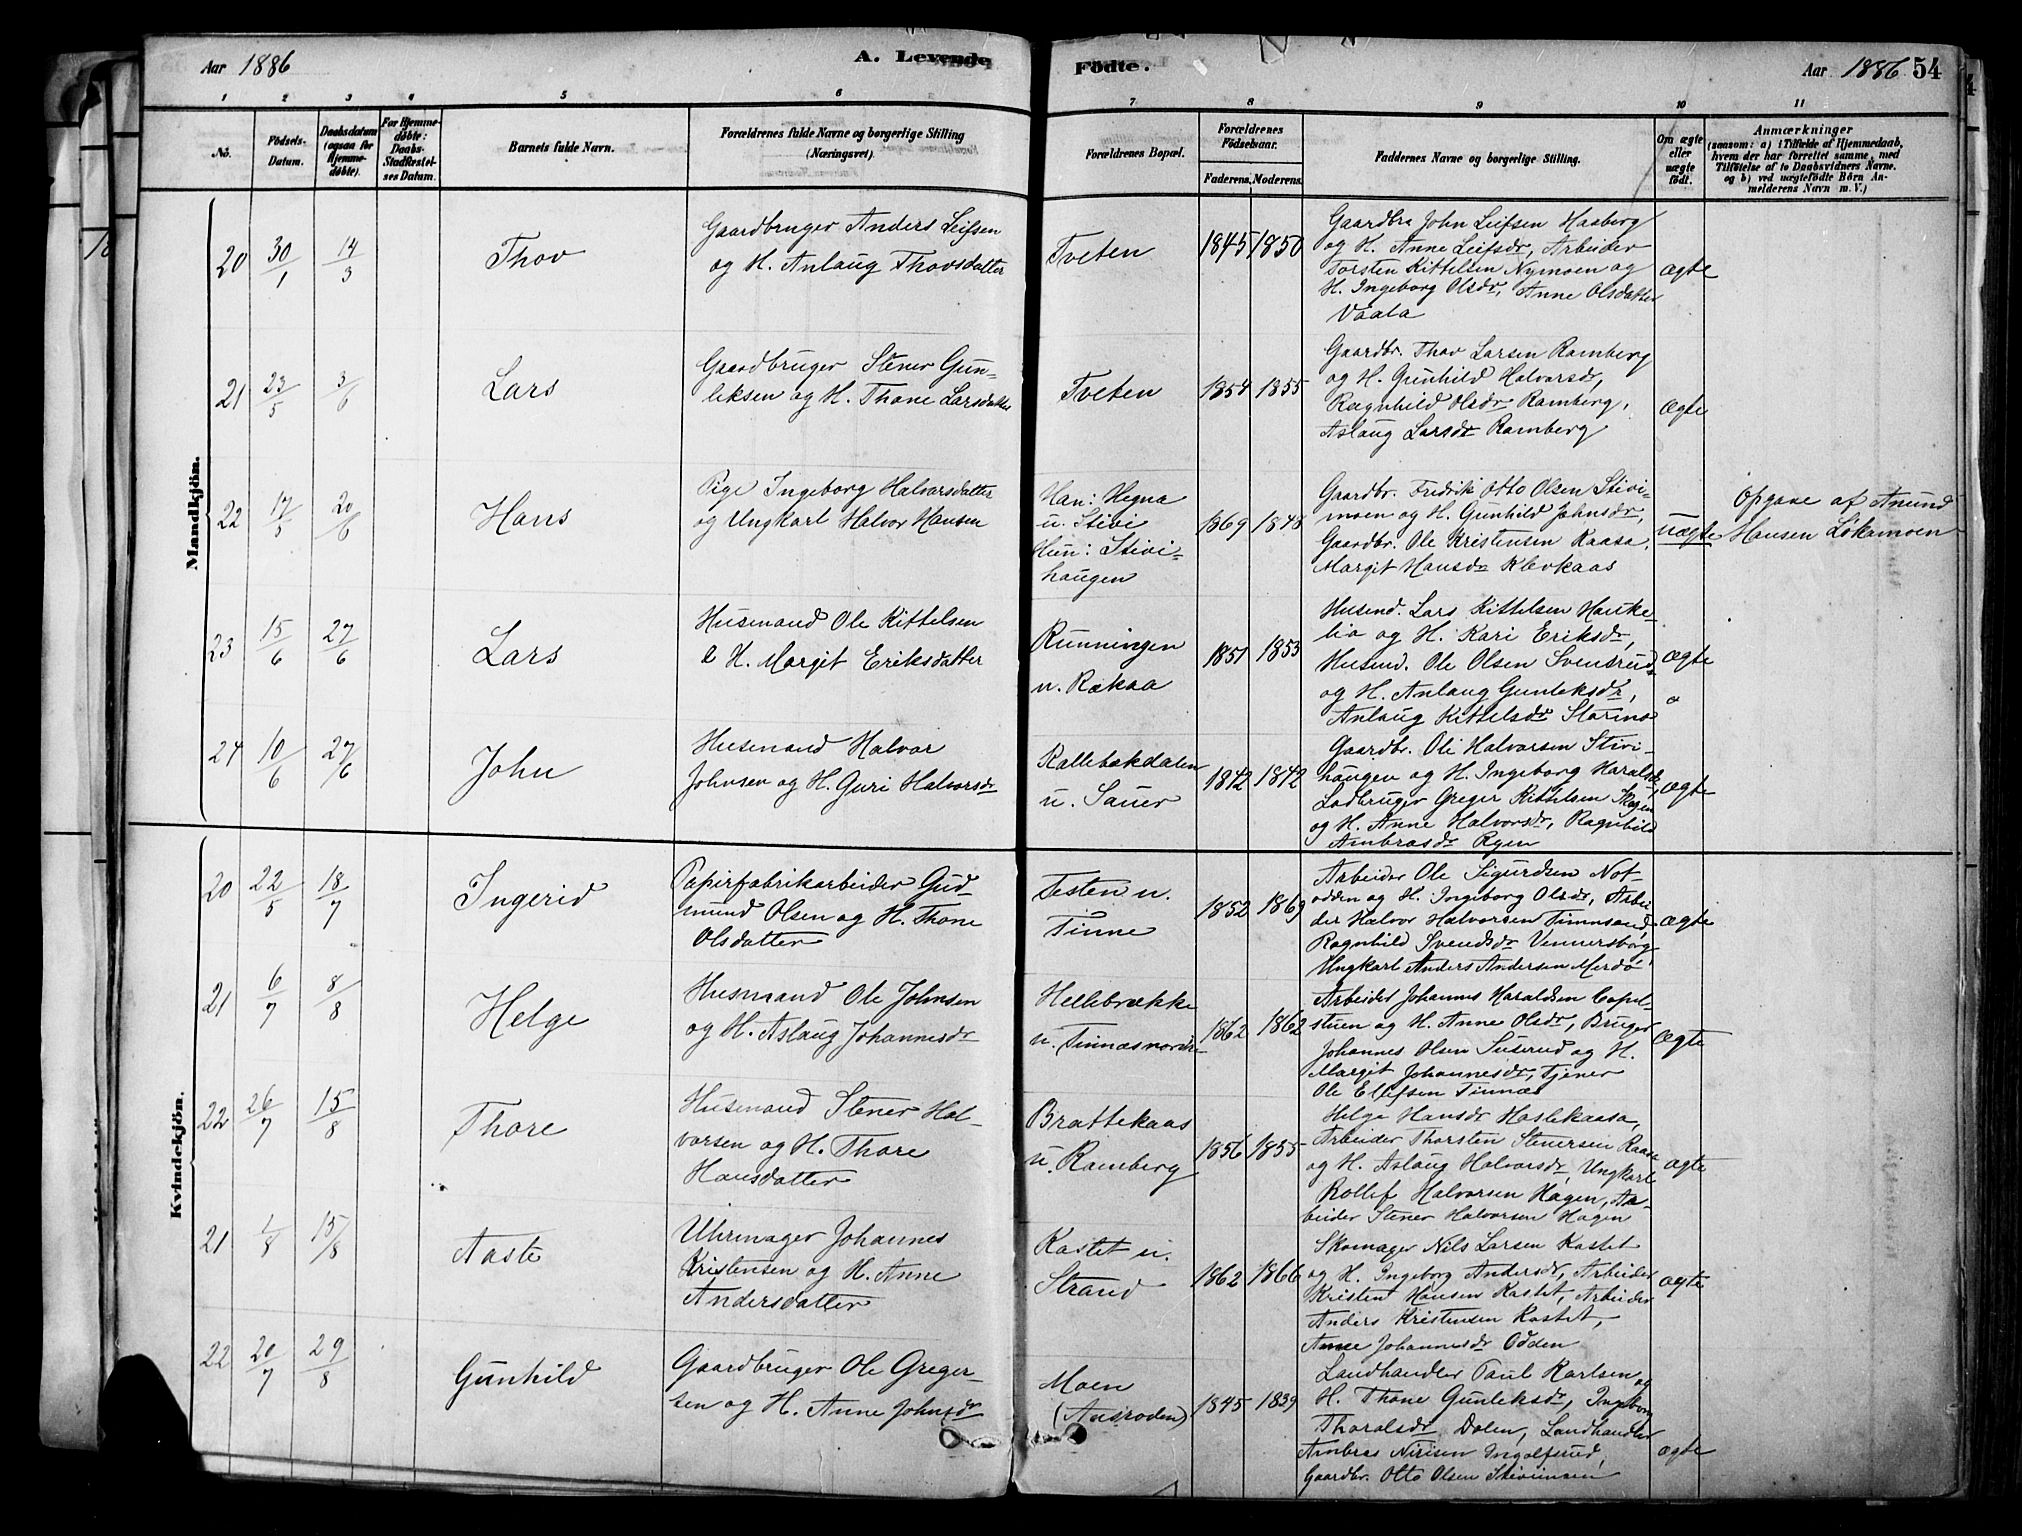 Aar 1886
A. Levende
Födte.
Aar 1886
54
1 2 3 4 5 6 7 8 9 10 11
No.
Födsels-
Datum.
Daabsdatum
(ogsaa for
Hjemme-
döbte).
For Hjemme-
döbte:
Daabs-
Stadfæstel-
ses Datum.
Barnets fulde Navn.
Forældrenes fulde Navne og borgerlige Stilling
(Næringsvei).
Forældrenes Bopæl.
Forældrenes
Födselsaar.
Faderens. Moderens.
Faddernes Navne og borgerlige Stilling.
Om ægte
eller
uægte
født.
Anmærkninger
(saasom: a) i Tilfælde af Hjemmedaab,
hvem der har forrettet samme, med
Tilföielse af to Daabsvidners Navne.
og b) ved uægtefödte Börn An-
melderens Navn m. V.)
Mandkjön.
20 30/1 14/3 Thov
Gaardbruger Anders Leifsen
og H. Anlaug Thovsdatter
Tveten
1845 1850
Gaardbr. John Leifsen Haaberg
og H. Anne Leifsdr, Arbeider
Torsten Kittelsen Nymoen og
H. Ingeborg Olsdr, Anne Olsdatter
Vaala
Ægte
21 23/5 3/6 Lars
Gaardbruger Stener Gun-
leksen og H. Thone Larsdatter
Tveten
1854 1855
Gaardbr. Thov Larsen Ramberg
og H. Gunhild Halvorsdr,
Ragnhild Olsdr Ramberg,
Aslaug Larsdr Ramberg
Ægte
22 17/5 20/6 Hans
Pige Ingeborg Halvorsdatter
og Ungkarl Halvor Hansen
Han: Hegna
u. Stivi
Hun: Stivi-
haugen
1869 1848
Gaardbr. Fredrik Otto Olsen Stivi-
moen og H. Gunhild Johnsdr,
Gaardbr. Ole Kristensen Kaasa,
Margit Hansdr Klevkaas
Uægte
Opgave af Anund
Hansen Løkamoen
23 15/6 27/6 Lars
Husmand Ole Kittelsen
& H. Margit Eriksdatter
Runningen
u. Rækaa
1851 1853
Husmd. Lars Kittelsen Hauke-
lia og H. Kari Eriksdr,
Husmd. Ole Olsen Svensrud
og H. Anlaug Gunleksdr,
Anlaug Kittelsdr Starmo
Ægte
24 10/6 27/6 John
Husmand Halvor
Johnsen og H. Guri Halvorsdr
Kallebækdalen
u. Sauer
1842 1842
Gaardbr. Ole Halvorsen Stivi-
haugen og H. Ingeborg Haralsdr,
Ladbruger Greger Kittelsen Skogen
og H. Anne Halvorsdr, Ragnhild
Ambrosdr Rygen
Ægte
Kvindekjön.
20 22/5 18/7 Ingerid
Papirfabrikarbeider Gud-
mund Olsen og H. Thone
Olsdatter
Testen u.
Tinne
1852 1869
Arbeider Ole Sigurdsen Not-
odden og H. Ingeborg Olsdr, Arbei-
der Halvor Halvorsen Tinnsand,
Ragnhild Svendsdr Vennersborg,
Ungkarl Anders Andersen Merdø
Ægte
21 6/7 8/8 Helge
Husmand Ole Johnsen
og H. Aslaug Johannesdr
Hellebrække
u. Tinnæsnordre
1862 1862
Arbeider Johannes Haraldsen Capel-
stuen og H. Anne Olsdr, Bruger
Johannes Olsen Suserud og H.
Margit Johannesdr, Tjener
Ole Ellefsen Tinnæs
Ægte
22 26/7 15/8 Thore
Husmand Stener Hal-
vorsen og H. Thore
Hansdatter
Brattekaas
u. Ramberg
1856 1855
Helge Hansdr Haslekaasa,
Arbeider Thorsten Stenersen Kaasa
og H. Aslaug Halvorsdr, Ungkarl
Rollef Halvorsen Hagen, Ar-
beider Stener Halvorsen Hagen
ægte
21 1/8 15/8 Aaste
Uhrmager Johannes
Kristensen og H. Anne
Andersdatter
Kastet u.
Strand
1862 1866
Skomager Nils Larsen Kastet
og H. Ingeborg Andersdr, Arbeider
Kristen Hansen Kastet, Arbeider
Anders Kristensen Kastet,
Anne Johannesdr Odden
ægte
22 20/7 29/8 Gunhild
Gaardbruger Ole Greger-
sen og H. Anne Johnsdr
Moen
1845 1839
Landhandler Paul Karlsen og
H. Thone Gunleksdr, Ingeborg
Thoralsdr Dalen, Landhandler
Ambros Nirisen Ingolfsrud,
Gaardbr. Otto Olsen Stivimoen
ægte